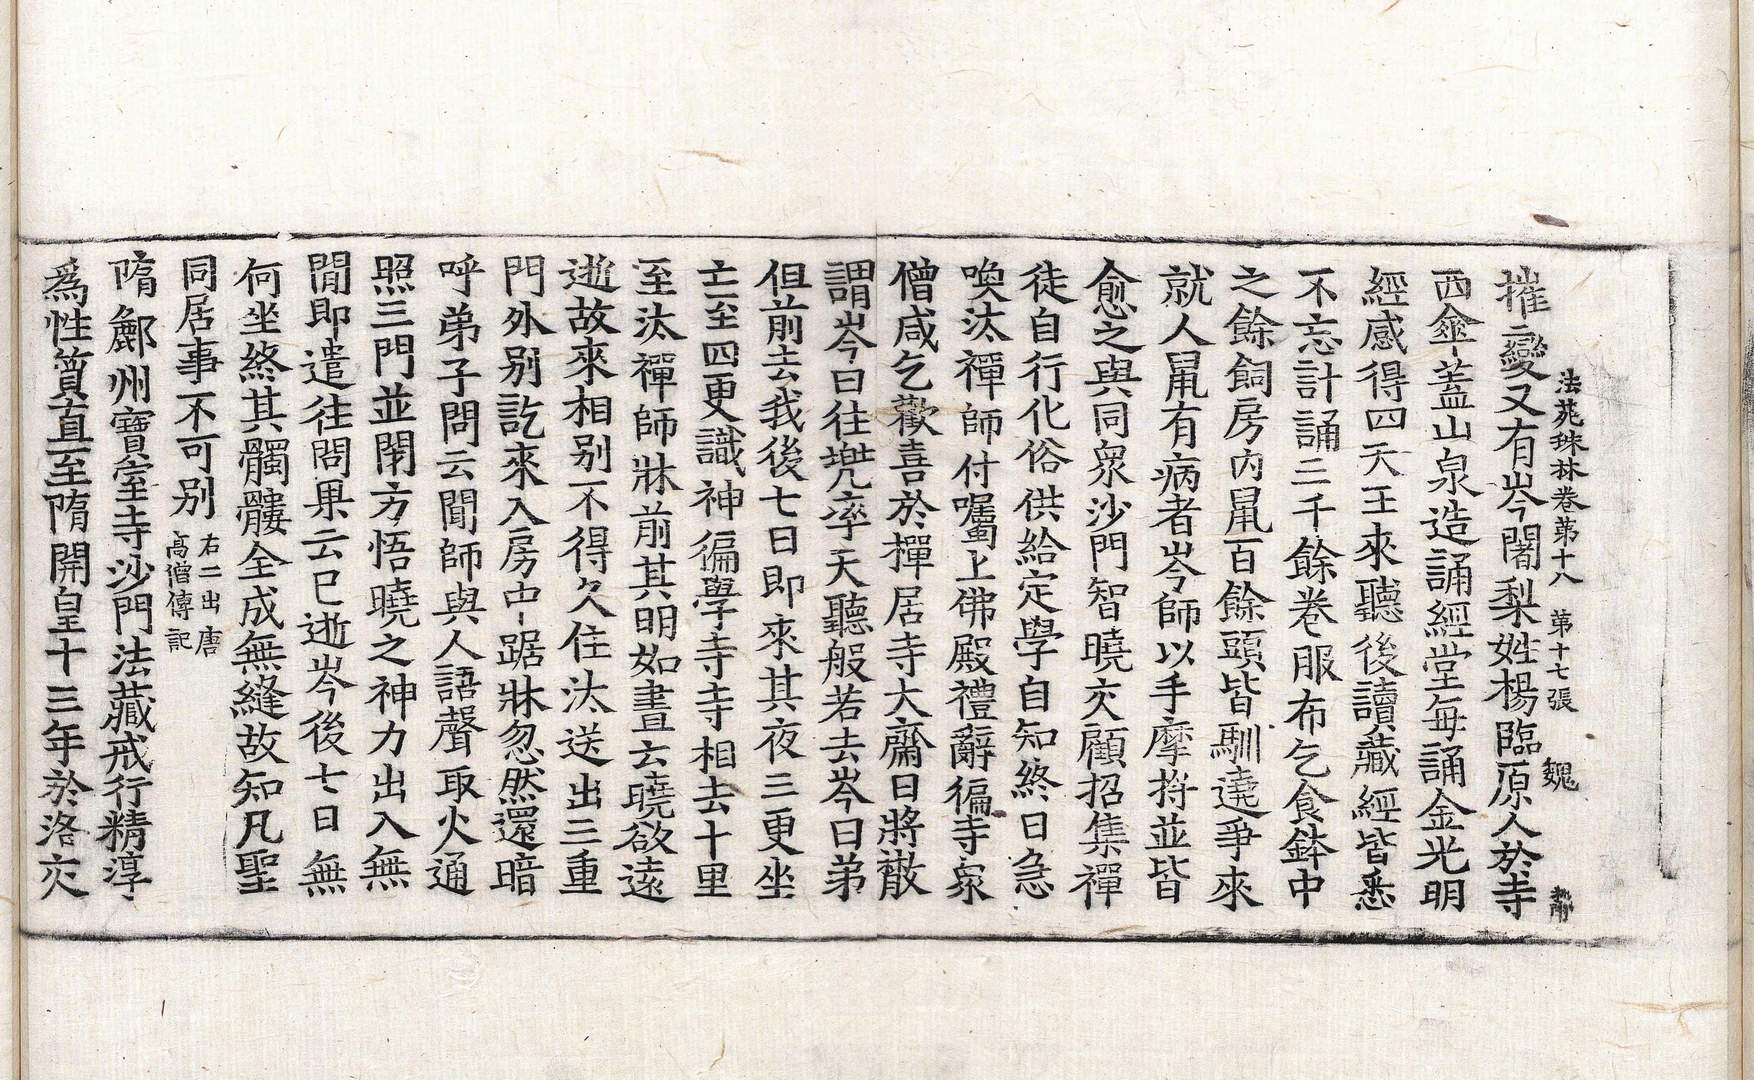 法苑珠林卷第十八　第十七張　魏
摧變又有岑闍梨姓楊臨原人於寺
西傘蓋山泉造誦經堂每誦金光明
經感得四天王來聽後讀藏經皆悉
不忘計誦三千餘卷服布乞食鉢中
之餘飼房內鼠百餘頭皆馴遶爭來
就人鼠有病者岑師以手摩捋並皆
愈悉之與同衆沙門智曉交顧招集禪
徒自行化俗供給定學自知終日急
喚汰禪師付囑上佛殿禮辭徧寺衆
僧咸乞歡喜於禪居寺大齋日將散
謂岑曰往兜率天聽般若去岑曰弟
但前去我後七日即來其夜三更坐
亡至四更識神徧學寺寺相去十里
至汰禪師牀前其明如晝云曉欲遠
逝故來相別不得久住汰送出三重
門外別訖來入房中踞牀忽然還暗
呼弟子問云聞師與人語聲取火通
照三門並閉方悟曉之神力出入無
閒即遣往問果云已逝岑後七日無
何坐終其髑髏全成無縫故知凡聖
同居事不可別右二出唐高僧傳記
隋鄜州寶室寺沙門法藏戒行精淳
爲性質直至隋開皇十三年於洛交